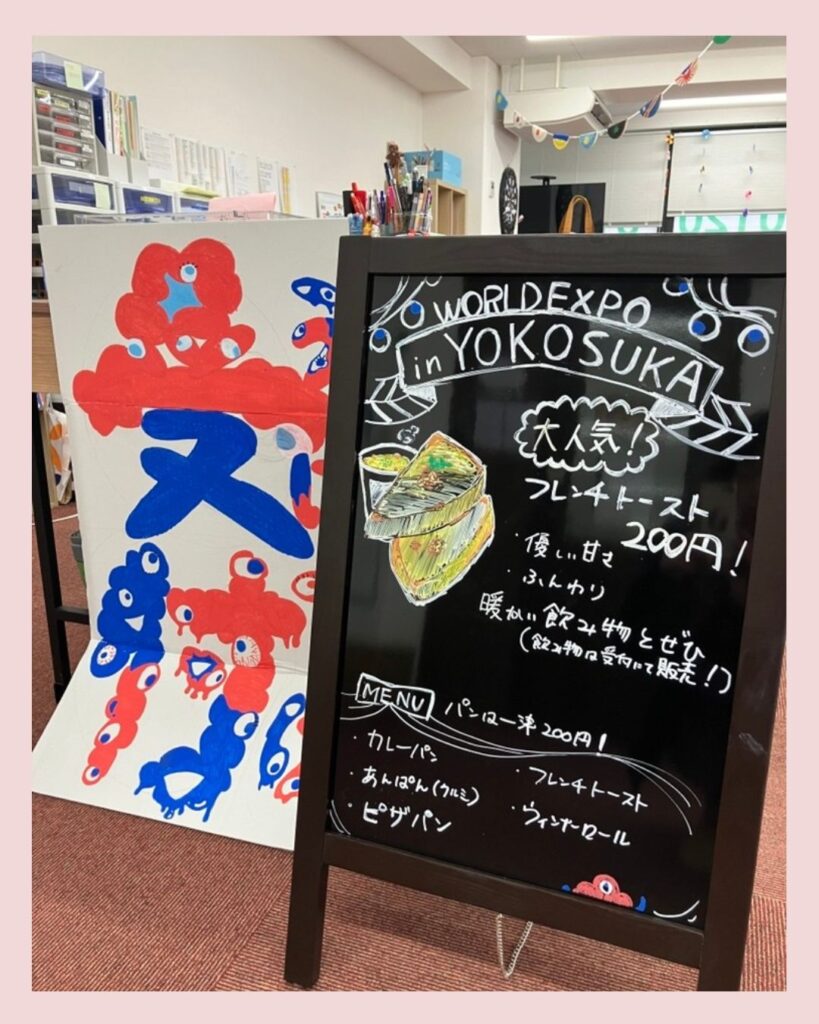 WORLD EXPO
in YOKOSUKA
大人気!
フレンチトースト
200円!
・優しい甘さ
・ふんわり
暖かい飲み物とぜひ
(飲み物は受付にて販売!)
MENU
パンは一律200円!
・カレーパン
・フレンチトースト
・あんぱん(クルミ)
・ウィンナーロール
・ピザパン